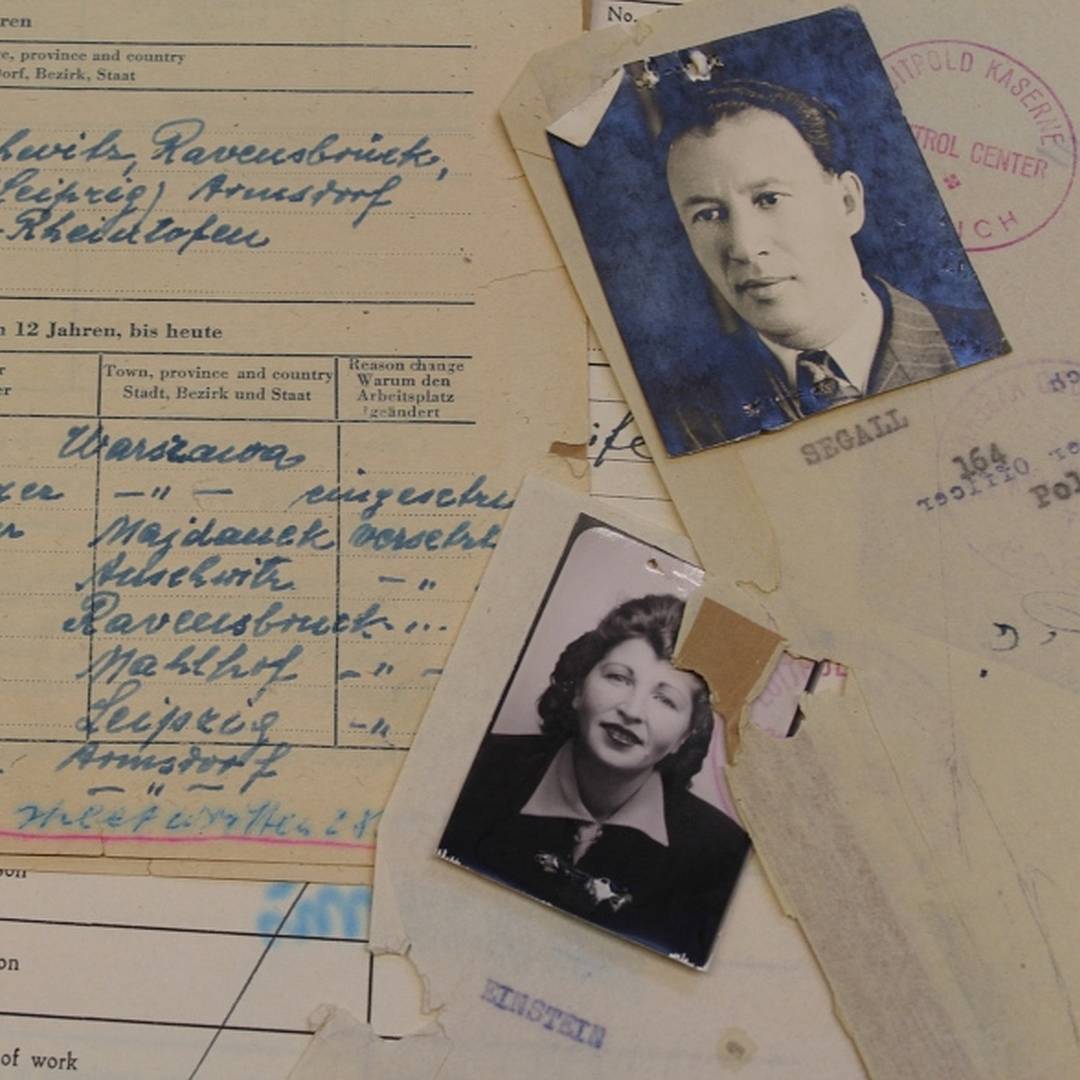 ren
e, province and country
Dorf, Bezirk, Staat
hwitz, Ravensbrück,
Leipzig) Armsdorf
-Rheinlofen
n 12 Jahren, bis heute
Town, province and country
Stadt, Bezirk und Staat
Reason change
Warum den
Arbeitsplatz
geändert
Warszawa
— " — eingesetzt
Majdanek versetzt
Auschwitz — "
Ravensbruck
Mahlhof — " —
Leipzig — "
Armsdorf
— " —
sheet written
on
of work
No.
ITPOLD KASERNE
TROL CENTER
ICH
ife
SEGALL
164
Officer
Pol
EINSTEIN